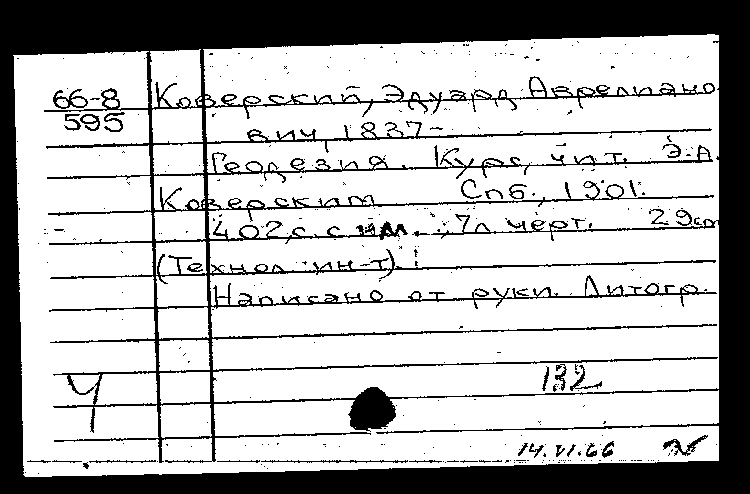 66-8 Коверский, Эдуард Аврелиано-
595 вич, 1837-
Геодезия. Курс, чит. Э.А.
Коверским Спб., 1901.
402 с. с илл., 7л черт. 29cm
(Технол. ин-т).
Написано от руки. Литогр.
Ч 132
14.VI.66